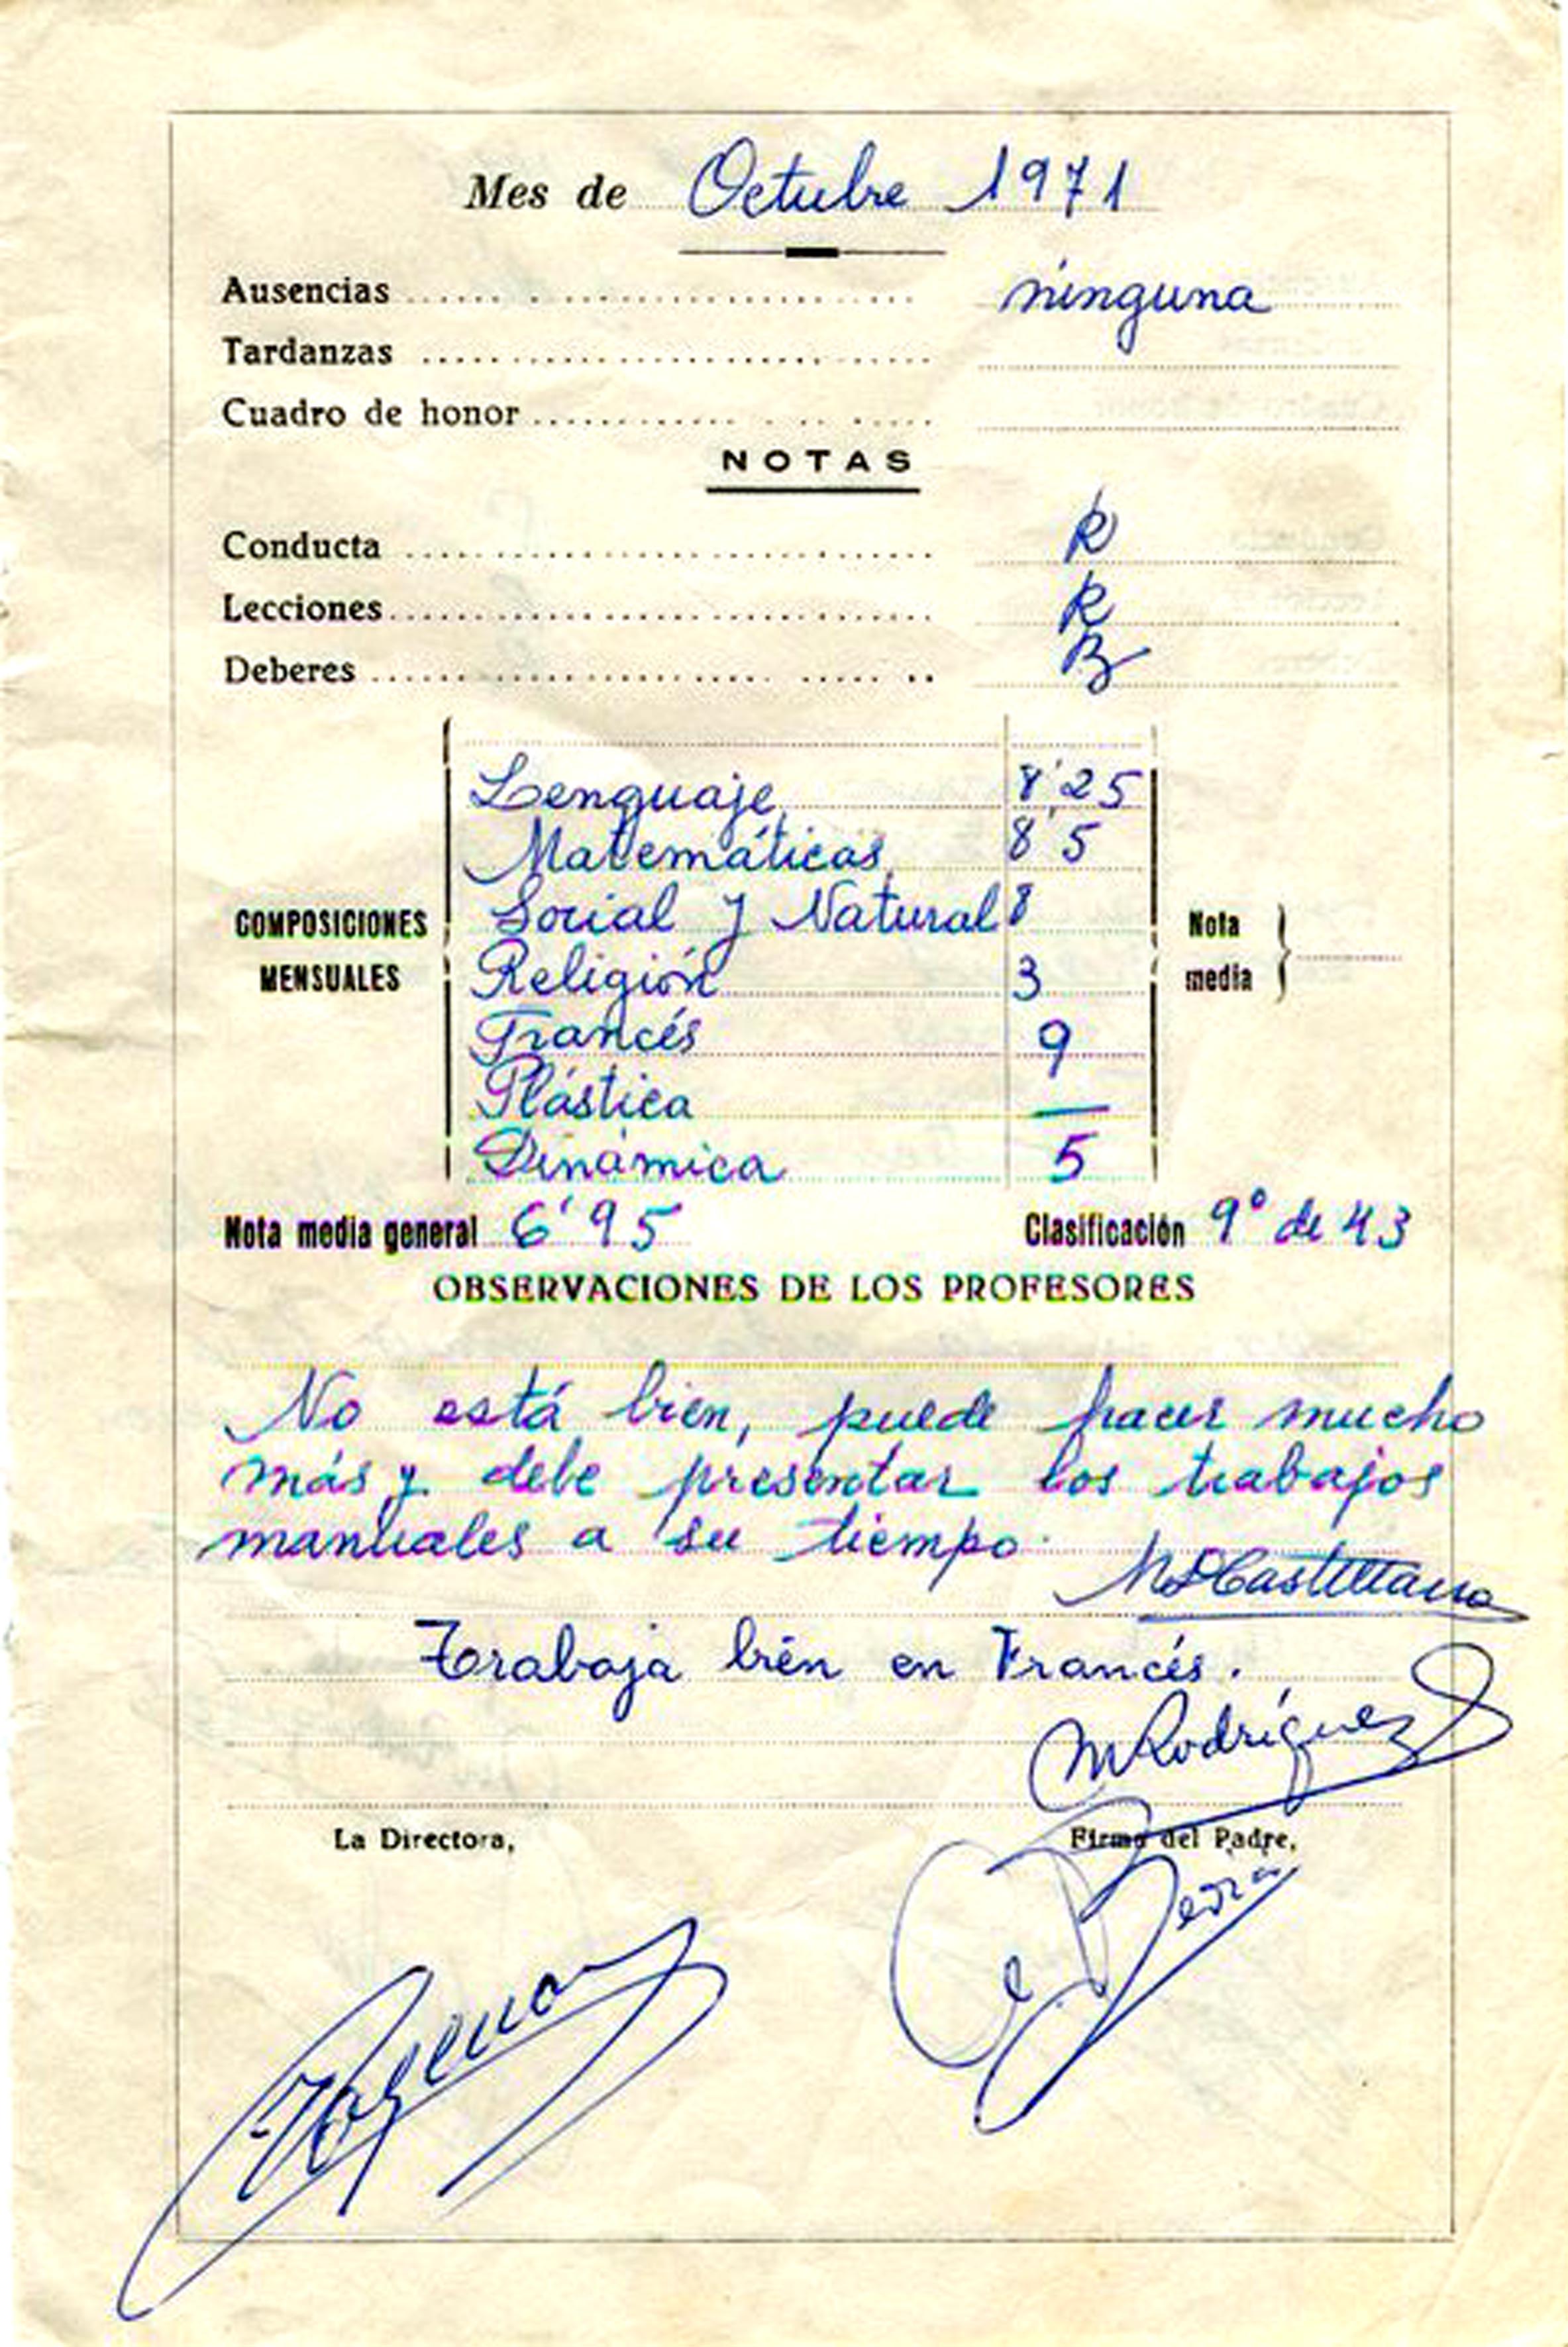 Mes de Octubre 1971
Ausencias ninguna
Tardanzas
Cuadro de honor
NOTAS
Conducta R
Lecciones R
Deberes B
COMPOSICIONES MENSUALES
Lenguaje 8'25
Matemáticas 8'5
Social y Natural 8
Religión 3
Francés 9
Plástica —
Dinámica 5
Nota media
Nota media general 6'95 Clasificación 9º de 43
OBSERVACIONES DE LOS PROFESORES
No está bien, puede hacer mucho
más y debe presentar los trabajos
manuales a su tiempo.
Trabaja bién en Francés.
MRodríguez
La Directora, Firma del Padre,